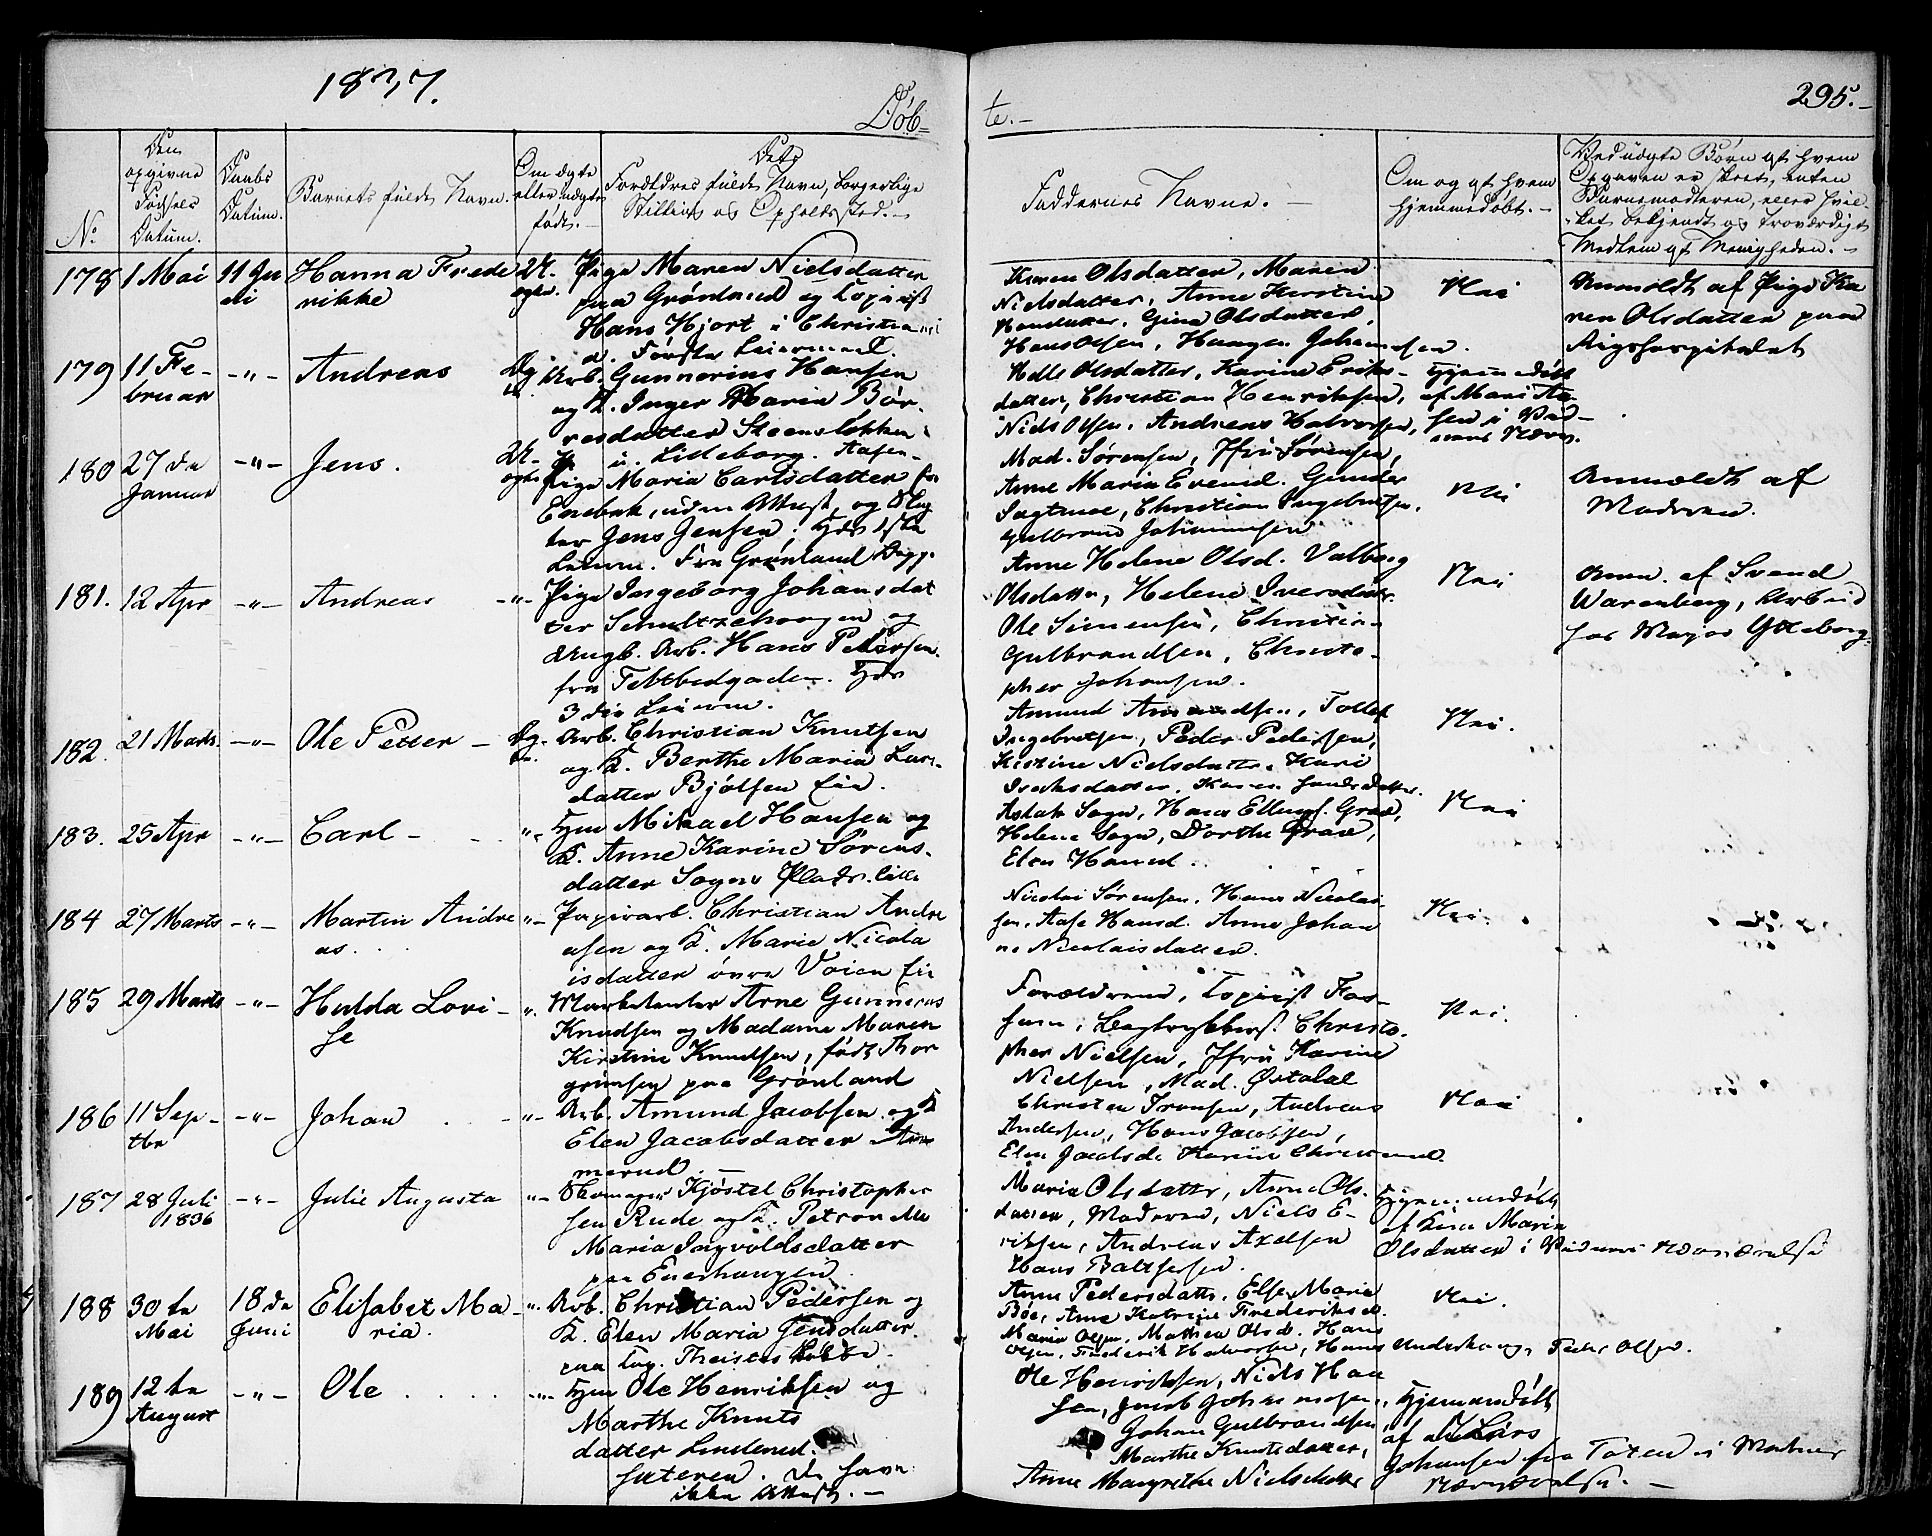 1837.
Døb=
te.-
295.-
No.
Den opgivne Fødsels Datum.
Daabs Datum.
Barnets fulde Navn.
Om ægte eller uægte født.-
Dets Forældres fulde Navn, borgerlige Stilling og Opholdssted.-
Faddernes Navne.-
Om og af hvem hjemmedøbt.-
Ved uægte Børn af hvem Opgaven er skeet, enten Barnemoderen, eller hvilket bekjendt og troværdigt Medlem af Menigheden.-
178 1 Mai 11 Ju
ni
Hanna Frede
rikke
Uægte.
Pige Maren Nielsdatter
paa Grønland og Copiist
Hans Hjort i Christiani
a. Første Leiermaal.
Karen Olsdatter, Maren
Nielsdatter, Anne Kirstine
Hansdatter, Gina Olsdatter,
Hans Olsen, Haagen Johannesen.
Nei
Anmeldt af Pige Ka
ren Olsdatter paa
Rigshospitalet
179 11 Fe-
bruar
-"-
Andreas
Arb. Gunnerius Hansen
og K. Inger Maria Bør-
resdatter Steensløkken
Helle Olsdatter, Karine Eriks-
datter, Christian Henriksen,
Niels Olsen, Andreas Halvorsen,
Hjemmedøbt
180 27 de
Januar
-"-
Jens.
Uægte
Pige Maria Carlsdatter fra
Enebak, uden Attest, og Slag
ter Jens Jensen, Hds 1ste
Leierm. Fra Grønland
Mad. Sørensen, Jfru Sørensen,
Anne Maria Evensd. Gunder
Sagtmoe, Christian Ingebretsen,
Gulbrand Johannesen
Nei
Anmeldt af
Moderen.
181. 12 Apr -"- Andreas -"-
Pige Ingeborg Johansdat
ter Schultzehougen og
Ungk. Arb. Hans Petersen
fra Feltbedgaden. Hds
3die Leierm.
Anne Helene Olsd. Valborg
Olsdatter, Helene Iversdatter
Ole Simensen, Christian
Gulbrandsen, Christo-
pher Johansen.
Nei
Anm. af Svend
Warenberg, Arbeid
hos Major Gøteborg.
182. 21 Marts. -"- Ole Petter - Æg-
te.
Arb. Christian Knutsen
og K. Berthe Maria Lars-
datter Bjølsen Eie.
Amund Amundsen, Tollef
Ingebretsen, Peder Pedersen,
Kistine Nielsdatter, Kari
Nei.
183. 25 Apr -"- Carl - "-
Hjm Mikael Hansen og
K. Anne Karine Sørens-
datter Sogns Plads.
Aslak Sogn, Hans Ellings. Grae,
Helene Sogn, Dorthe Grae,
Elen Hansd.
Nei
184 27 Marts -"- Martin Andre
as.
"-
Papirarb. Christian Andre
asen og K. Marie Nicola
isdatter øvre Voien Eie
Nicolai Sørensen, Hans Nicolai-
sen, Aase Hansd. Anne Johan
ne Nicolaisdatter.
Nei.
185 29 Marts -"- Hulda Lovi-
se
".
Marketenter Arne Gunnerus
Knudsen og Madame Maren
Kirstine Knudsen, født Thor
grimsen paa Grønland
Forældrene, Copiist Fos-
sum, Bogtrykkers. Christo-
pher Nielsen, Jfru Karine
Nielsen, Mad. Østdal
Nei.
186 11 Sep-
tbr
-"- Johan -"-
Arb. Amund Jacobsen og K
Elen Jacobsdatter Am
merud.
Christen Iversen, Andreas
Andersen, Hans Jacobsen,
Elen Jacobsd. Karine Christensd.
Nei
187 28 Juli
1836
-"- Julie Augusta "-
Skomager Kjøstel Christopher
sen Rude og K. Petronelle
Maria Ingvoldsdatter
paa Enerhaugen
Maria Olsdatter, Anne Ols-
datter, Moderen, Niels E-
riksen, Andreas Axelsen
Hans Baltsersen.
Hjemmedøbt
af Kari Maria
Olsdatter i Vidners Nærværelse
188 30 te
Mai
18 de
Juni
Elisabet Ma-
ria.
".
Arb. Christian Pedersen og
K. Elen Maria Jensdatter
paa Cap. Theistes Løkke.
Anne Pedersdatter, Else Marie
Bøe, Anne Katrine Frederiksd.
Maren Olsen, Mathea Olsd. Hans
Olsen, Frederik Halvorsen, Hans Anderhaug, Peder Olsen.
Nei.
189 12 te
August
-"- Ole
Hjm Ole Henriksen og
Marthe Knuts
datter Linderud.
Sæteren. De have
ikke Attest.-
Ole Henriksen, Niels Han
sen, Jacob Johannesen,
Johan Gulbrandsen
Marthe Knutsdatter,
Anne Margrethe Nielsdatter
Hjemmedøbt
af Lars
Johansen fra Toten i Moders
Nærværelse.-